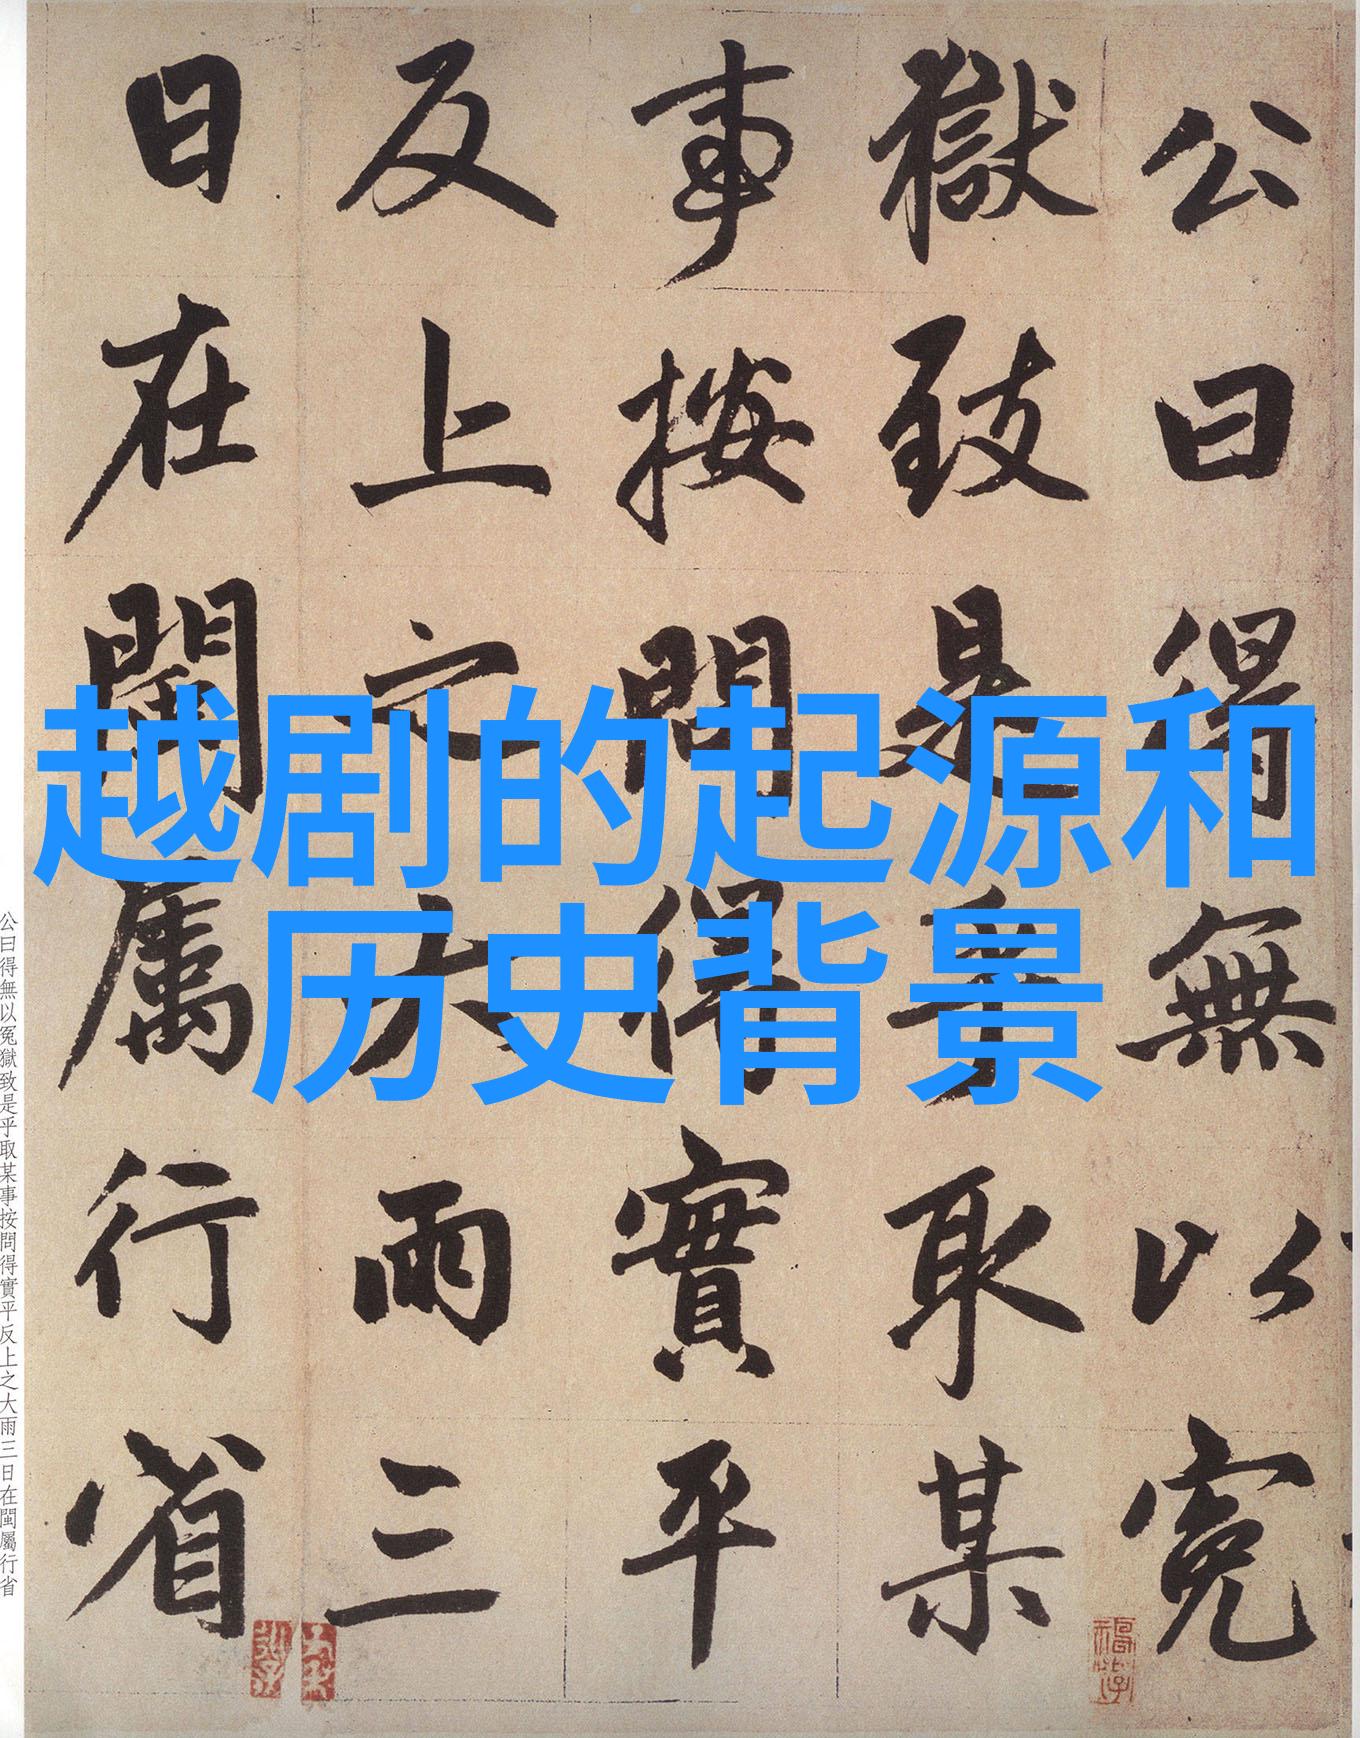 越剧的起源和
历史背景
公曰得無以冤
獄致是乎取某
事按問得實平
反上之大雨三
日在閩属行省
公曰得無以冤獄致是乎取某事按問得實平反上之大雨三日在閩屬行省